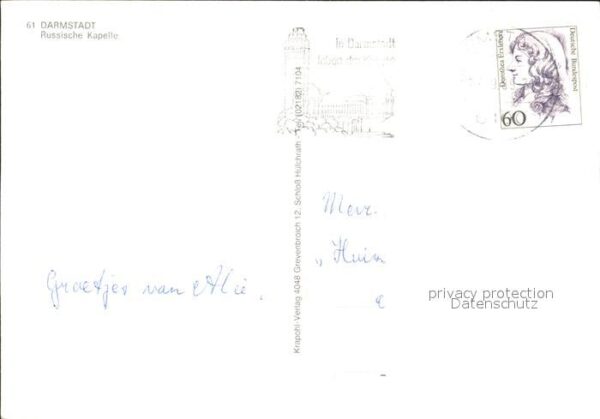 61 DARMSTADT
Russische Kapelle
In Darmstadt
leben die Künste
Dorothea Erxleben
Deutsche Bundespost
60
Krapohl-Verlag 4048 Grevenbroich 12, Schloß Hülchrath · Tel. (02182) 7104
Mevr.
Groetjes van Alie.
privacy protection
Datenschutz